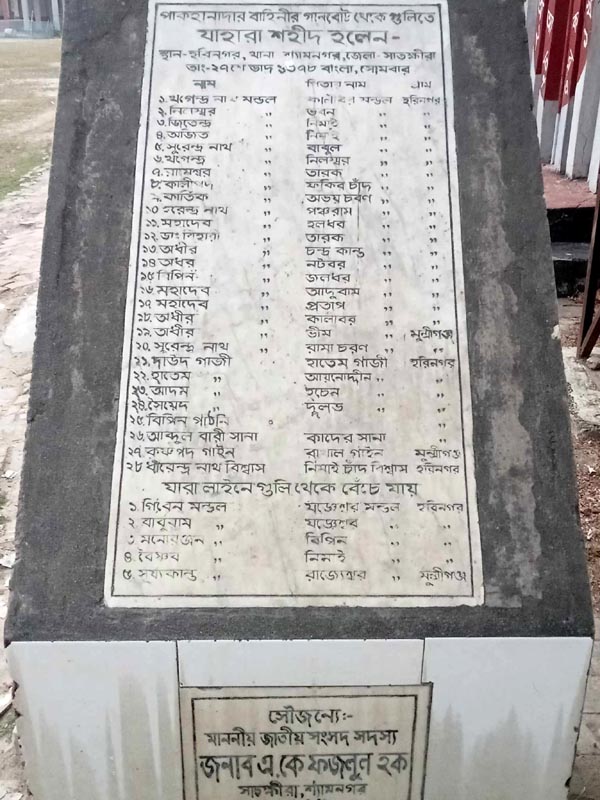 পাকহানাদার বাহিনীর গানবোট থেকে গুলিতে
যাহারা শহীদ হলেন-
স্থান-হরিনগর, থানা শ্যামনগর, জেলা- সাতক্ষীরা
তাং-২৭শে ভাদ্র ১৩৭৮ বাংলা, সোমবার
নাম পিতার নাম গ্রাম
১. খগেন্দ্র নাথ মন্ডল কালাচাঁদ মন্ডল হরিনগর
২. নিলাম্বর ,, ভবন ,, ,,
৩. জিতেন্দ্র ,, নিমাই ,, ,,
৪. অজিত ,, নিমাই ,, ,,
৫. সুরেন্দ্র নাথ ,, বাবুল ,, ,,
৬. খগেন্দ্র ,, নিলম্বর ,, ,,
৭. রামেশ্বর ,, তারক ,, ,,
৮. কালীপদ ,, ফকির চাঁদ ,, ,,
৯. কার্তিক ,, অভয় চরণ ,, ,,
১০ হরেন্দ্র নাথ ,, পঞ্চরাম ,, ,,
১১. মহাদেব ,, হলধর ,, ,,
১২. ডাঃ বিহারী ,, তারক ,, ,,
১৩. অধীর ,, চন্দ্র কান্ত ,, ,,
১৪ অধর ,, নটবর ,, ,,
১৫ বিপিন ,, জলধর ,, ,,
১৬ মহাদেব ,, আদুরাম ,, ,,
১৭ মহাদেব ,, প্রতাপ ,, ,,
১৮. অধীর ,, কালাবর ,, ,,
১৯. অধীর ,, ভীম ,, মুন্সীগঞ্জ
২০. সুরেন্দ্র নাথ ,, রামা চরণ ,, ,,
২১. দাউদ গাজী হাতেম গাজী হরিনগর
২২. হাতেম ,, আয়নোদ্দীন ,, ,,
২৩. আদম ,, ইচেন ,, ,,
২৪. সৈয়েদ ,, দুলভ ,, ,,
২৫. বিপিন পাঠনি ,,
২৬. আব্দুল বারী সানা কাদের সানা ,,
২৭. কৃষ্ণপদ গাইন রাখাল গাইন মুন্সীগঞ্জ
২৮ ধীরেন্দ্র নাথ বিশ্বাস নিমাই চাঁদ বিশ্বাস হরিনগর
যারা লাইনে গুলি থেকে বেঁচে যায়
১. গিরেন মন্ডল যজ্ঞেশ্বর মন্ডল হরিনগর
২. বাবুরাম ,, যজ্ঞেশ্বর ,, ,,
৩ মনোরঞ্জন ,, বিপিন ,, ,,
৪. বৈষ্ণব ,, নিমাই ,, ,,
৫. সূর্য্যকান্ত ,, রাজ্যেশ্বর ,, মুন্সীগঞ্জ
সৌজন্যে:-
মাননীয় জাতীয় সংসদ সদস্য
জনাব এ.কে ফজলুল হক
সাতক্ষীরা, শ্যামনগর